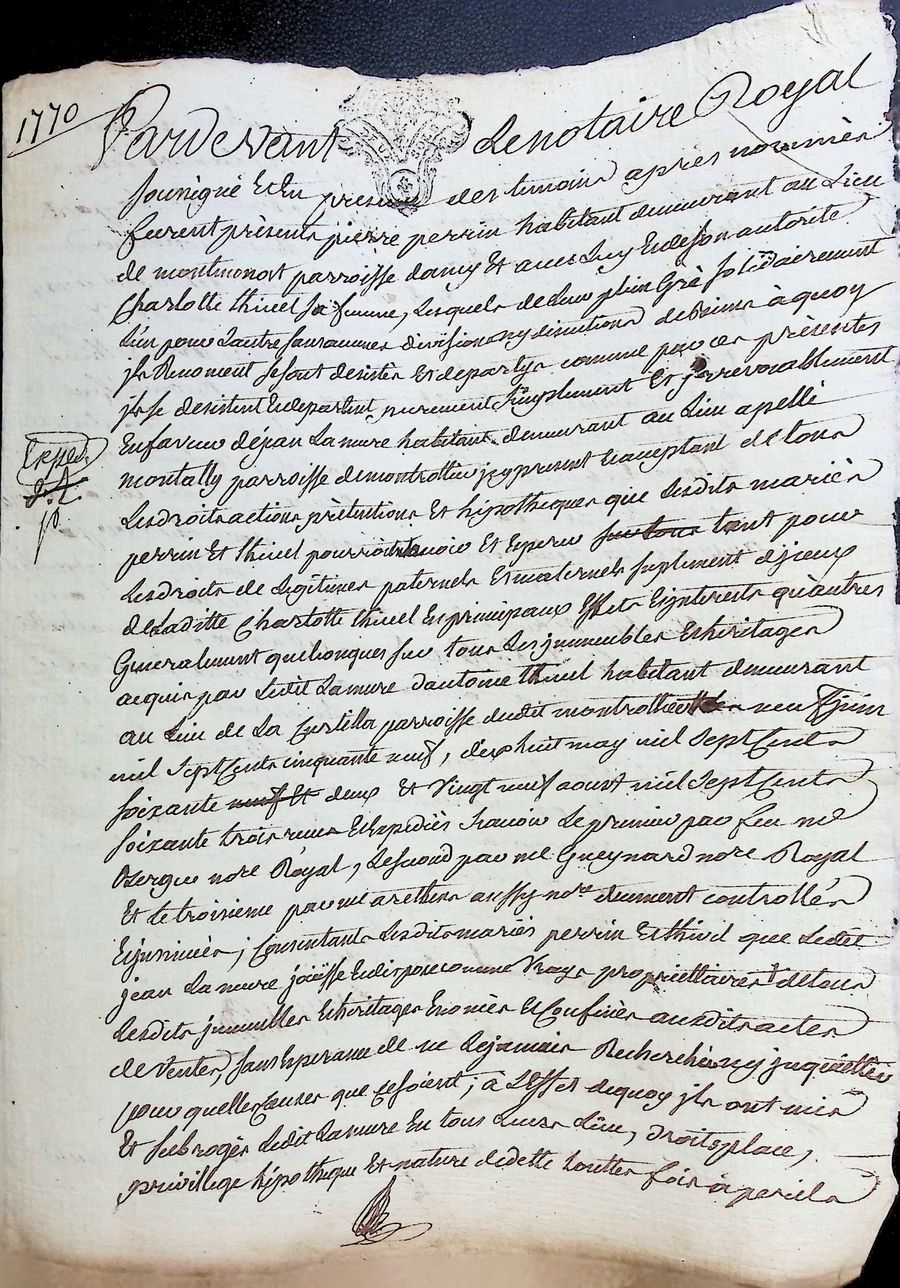 1770
Pardevant Le notaire Royal
soussigné Et En presence des temoins apres nommés
furent présents pierre perrin habitant demeurant au Lieu
de montmonost parroisse damy Et avec Luy Et de son autorité
Charlotte thivel sa femme, Lesquels de Leur plein Gré solidairement
L'un pour L'autre sans aucunes division ny
jls Renoncent se sont desistés Et departys comme par ces présentes
jls se desistent Et departent purement simplement Et jrrevocablement
En faveur de jean Lamure habitant demeurant au Lieu apellé
Exped.
montally parroisse de montrottier jcy present Et acceptant de tous
Les droits actions prétentions Et hipotheques que Lesdits mariés
perrin Et thivel pourroient avoir Et Esperer sur tous tant pour
Les droits de Legitimes paternels Et maternels suplement djceux
de Laditte Charlotte thivel En principaux Effets Et jnterests qu'autres
Generalement quelconques sur tous Les jmmeubles Et heritages
acquis par Ledit Lamure d'antoine thivel habitant demeurant
au Lieu de La parroisse dudit montrottier neuf juin
mil sept Cents cinquante neuf, dixhuit may mil sept Cents
soixante neuf Et deux Et Vingt neuf aoust mil sept Cents
soixante trois reçus Et Expediés scavoir Le premier par feu me
nore Royal, Le second par me Gueynard nore Royal
Et le troisieme par me aussy nore duement controllés
Et jnsinués; Consentants Lesdits mariés perrin Et thivel que Ledit
jean Lamure joüisse Et dispose comme Vrays propriettaires de tous
Lesdits jmmeubles Et heritages Enoncés Et Confinés auxdits actes
de Ventes, sans Esperance de ne Lejamais Recherchés ny jnquietter
pour quelles Causes que ce soient; à L'Effet dequoy jls ont mis
Et subrogés Ledit Lamure En tous Leurs Lieu, droits, place,
privillege hipotheque Et nature de dette touttes fois à perils